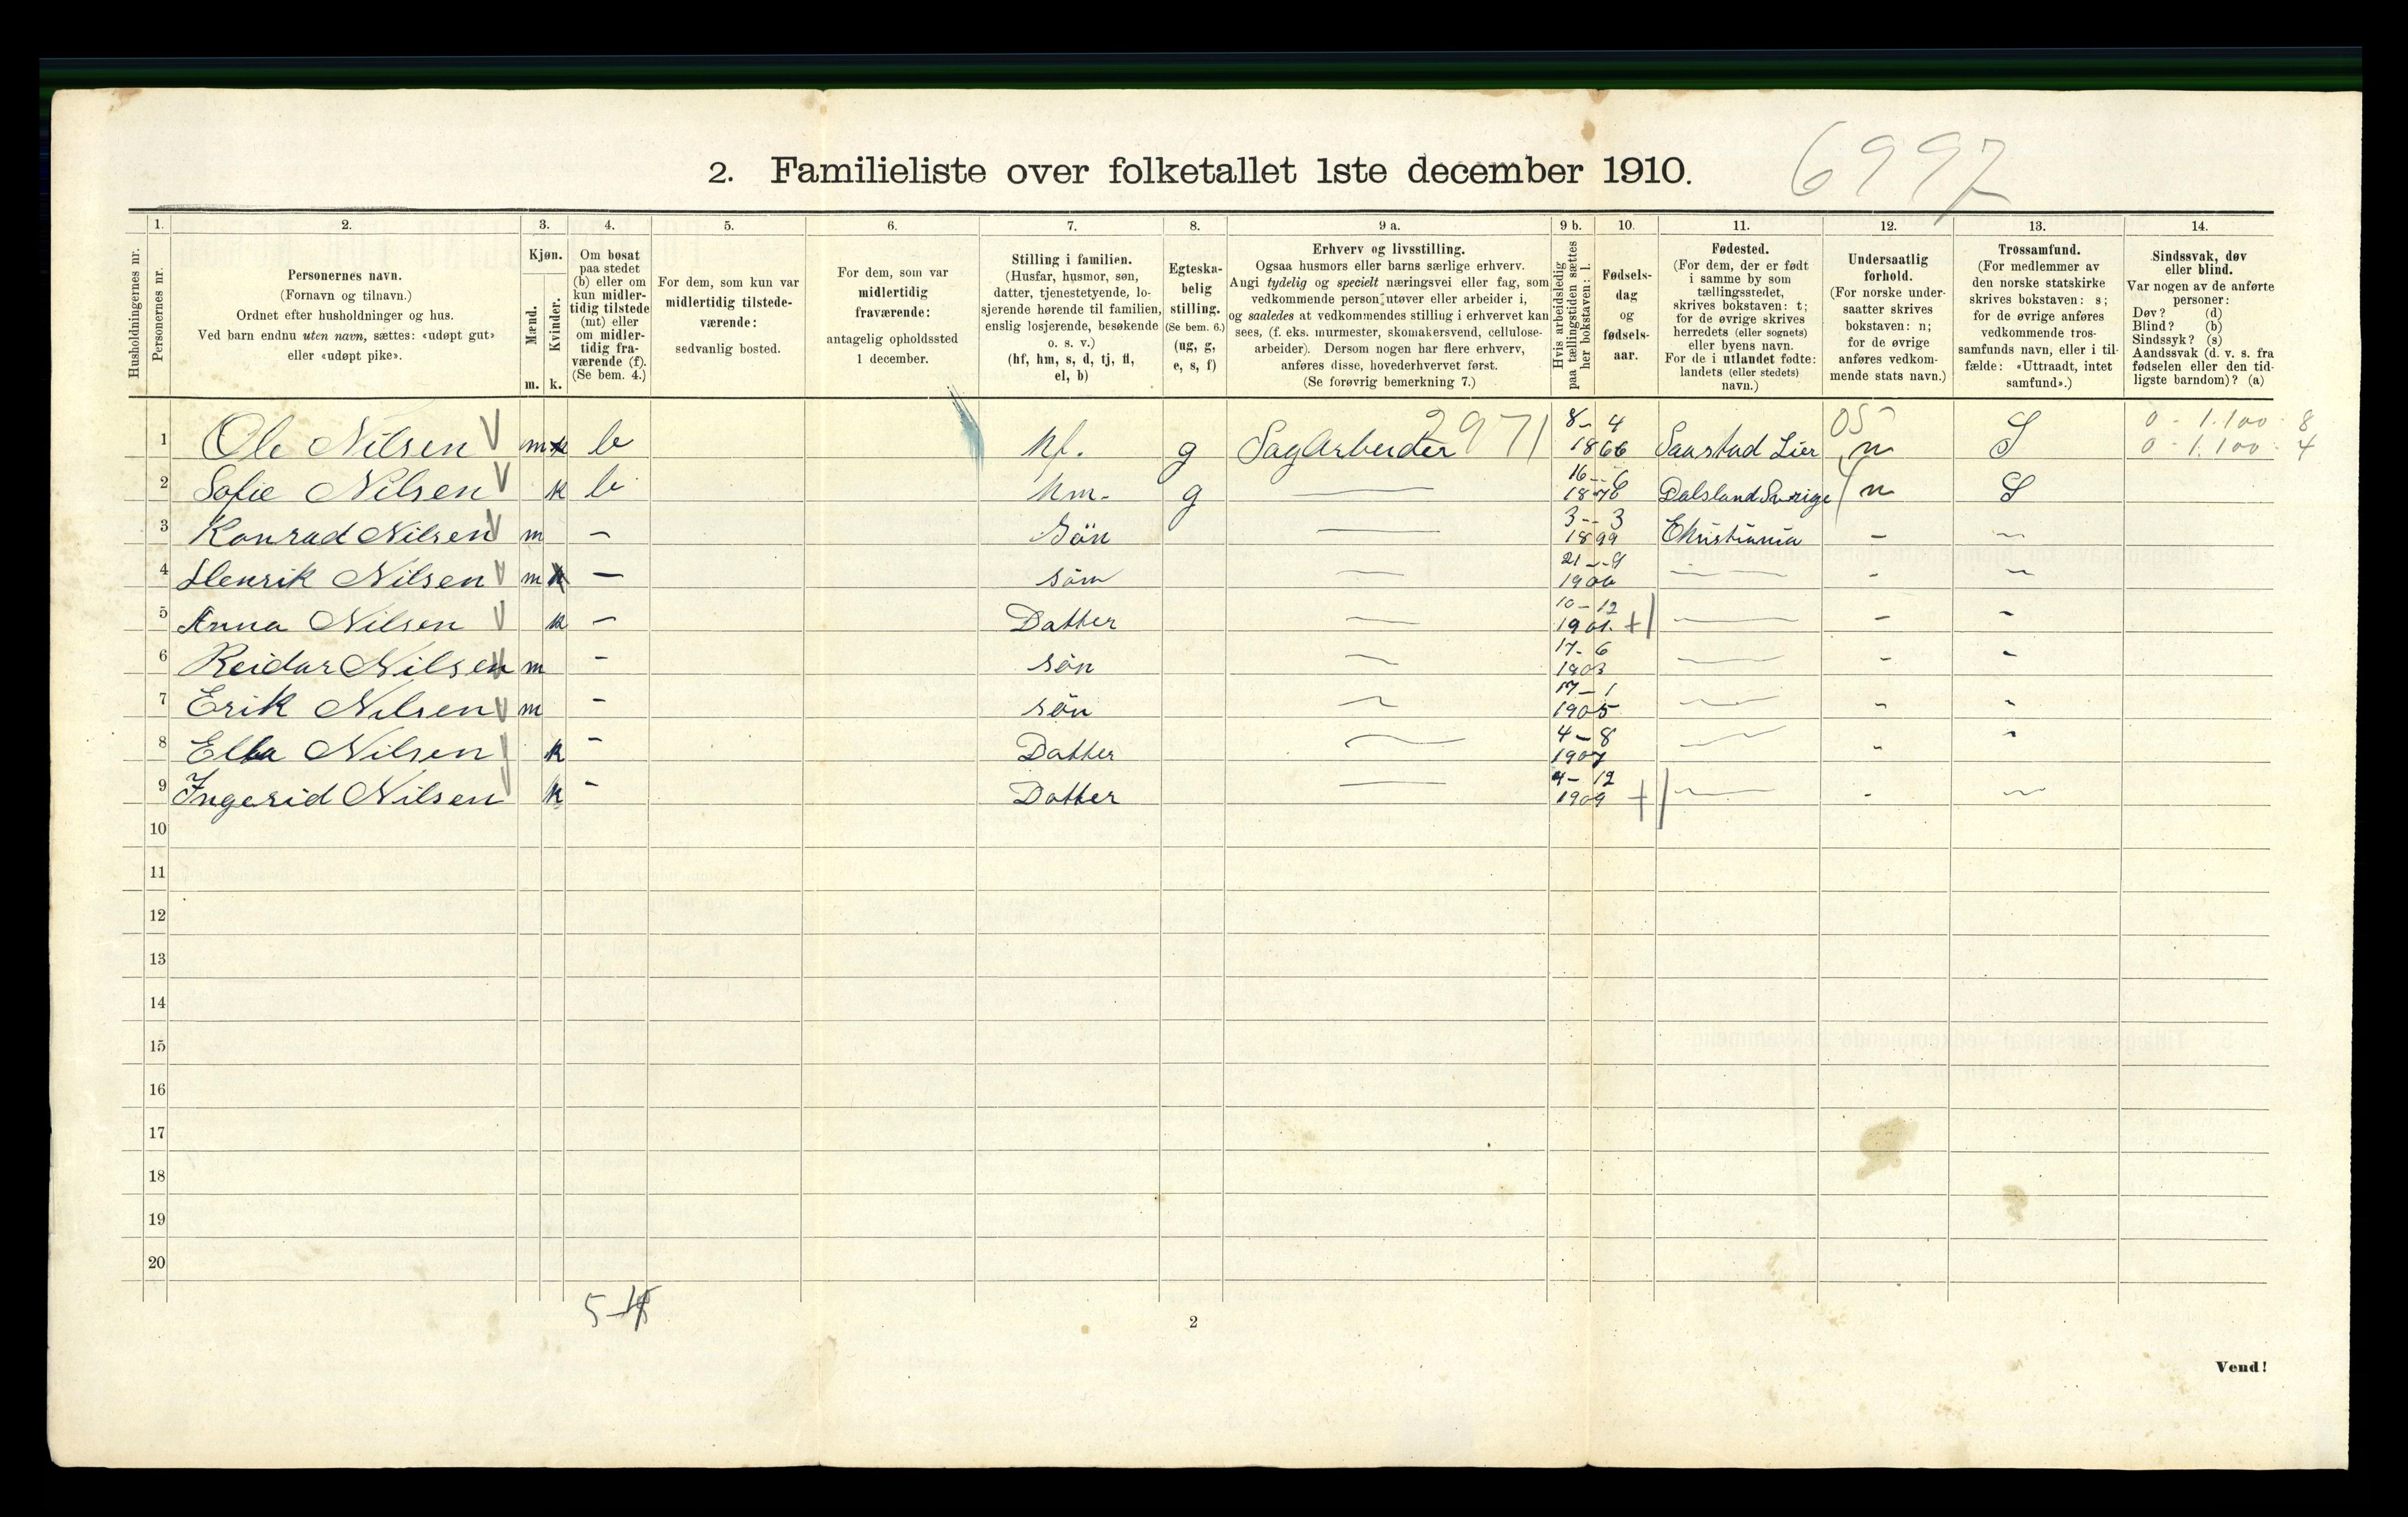 6997
2. Familieliste over folketallet 1ste december 1910.
1. 2. 3. 4. 5. 6. 7. 8. 9 a. 9 b. 10. 11. 12. 13. 14.
Husholdningernes nr.
Personernes nr.
Personernes navn.
(Fornavn og tilnavn.)
Ordnet efter husholdninger og hus.
Ved barn endnu uten navn, sættes: «udøpt gut»
eller «udøpt pike».
Kjøn.
Mænd.
Kvinder.
m. k.
Om bosat
paa stedet
(b) eller om
kun midler-
tidig tilstede
(mt) eller
om midler-
tidig fra-
værende (f).
(Se bem. 4.)
For dem, som kun var
midlertidig tilstede-
værende:
sedvanlig bosted.
For dem, som var
midlertidig
fraværende:
antagelig opholdssted
1 december.
Stilling i familien.
(Husfar, husmor, søn,
datter, tjenestetyende, lo-
sjerende hørende til familien,
enslig losjerende, besøkende
o. s. v.)
(hf, hm, s, d, tj, fl,
el, b)
Egteska-
belig
stilling.
(Se bem. 6.)
(ug, g,
e, s, f)
Erhverv og livsstilling.
Ogsaa husmors eller barns særlige erhverv.
Angi tydelig og specielt næringsvei eller fag, som
vedkommende person utøver eller arbeider i,
og saaledes at vedkommendes stilling i erhvervet kan
sees, (f. eks. murmester, skomakersvend, cellulose-
arbeider). Dersom nogen har flere erhverv,
anføres disse, hovederhvervet først.
(Se forøvrig bemerkning 7.)
Hvis arbeidsledig
paa tællingstiden sættes
her bokstaven: l.
Fødsels-
dag
og
fødsels-
aar.
Fødested.
(For dem, der er født
i samme by som
tællingsstedet,
skrives bokstaven: t;
for de øvrige skrives
herredets (eller sognets)
eller byens navn.
For de i utlandet fødte:
landets (eller stedets)
navn.)
Undersaatlig
forhold.
(For norske under-
saatter skrives
bokstaven: n;
for de øvrige
anføres vedkom-
mende stats navn.)
Trossamfund.
(For medlemmer av
den norske statskirke
skrives bokstaven: s;
for de øvrige anføres
vedkommende tros-
samfunds navn, eller i til-
fælde: «Uttraadt, intet
samfund».)
Sindssvak, døv
eller blind.
Var nogen av de anførte
personer:
Døv? (d)
Blind? (b)
Sindssyk? (s)
Aandssvak (d. v. s. fra
fødselen eller den tid-
ligste barndom)? (a)
2971 8-4 05 0 - 1.100 - 8
1 Ole Nilsen m k b hf. g Sagarbeider 1866 Lier n S 0 - 1.100 - 4
16-6
2 Sofie Nilsen k b hm. g — 1876 Dalsland Sverige n S
3-3
3 Konrad Nilsen m — Sön — 1899 Christiania - —
21-9
4 Henrik Nilsen m k — sön — 1900 — - —
10-12
5 Anna Nilsen k — Datter — 1901. + — - -
17-6
6 Reidar Nilsen m - sön — 1903 — - -
17-1
7 Erik Nilsen m - sön — 1905 — - -
4-8
8 Ella Nilsen k - Datter — 1907 — - -
4-12
9 Ingerid Nilsen k - Datter — 1909 + — - —
10
11
12
13
14
15
16
17
18
19
20
5-4
2
Vend!